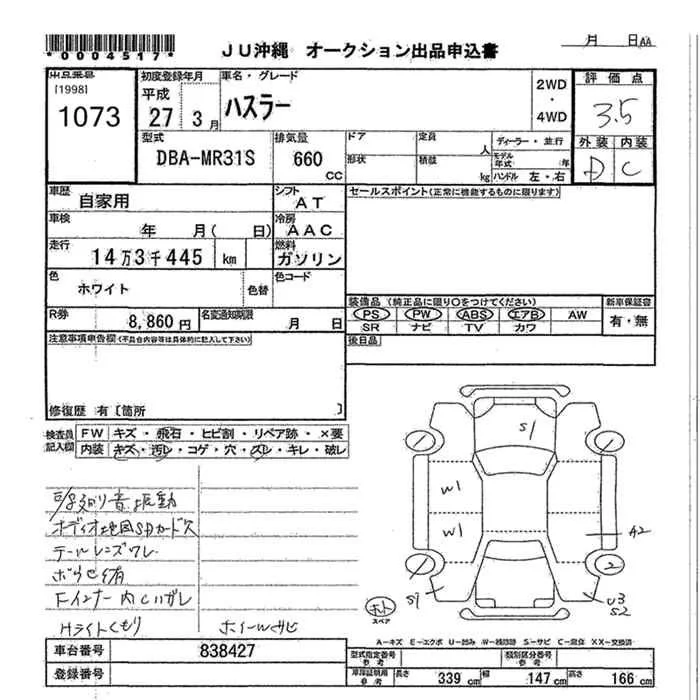 *0004517*
JU沖縄 オークション出品申込書
月 日AA
出品番号 [1998] 1073
初度登録年月 平成 27 3月
車名・グレード ハスラー
2WD・4WD
評価点 3.5
外装 内装
D C
型式 DBA-MR31S
排気量 660 CC
ドア 形状
定員 人 積載 kg
ディーラー・並行
モデル年式 年
ハンドル 左・右
車歴 自家用
シフト AT
セールスポイント(正常に機能するものに限ります)
車検 年 月( 日)
冷房 AAC
走行 14万3千445 km
燃料 ガソリン
色 ホワイト 色替
色コード
R券 8,860円
名変通知期限 月 日
装備品(純正品に限り○をつけてください)
PS PW ABS エアB AW
SR ナビ TV カワ
新車保証書 有・無
注意事項申告欄(不具合内容等は具体的に記入して下さい)
後日品
修復歴 有〔箇所 〕
検査員記入欄
FW キズ・飛石・ヒビ割・リペア跡・×要
内装 キズ・汚レ・コゲ・穴・スレ・キレ・破レ
音 振動
オーディオ地図SDカード欠
テールレンズワレ
Fインナー内
Hライトくもり ホイールサビ
S1
W1
W1
A2
2
S1
U3
S2
スペア
A-キズ E-エクボ U-凹み W-補修跡 S-サビ C-腐食 XX-交換済
車台番号 838427
登録番号
型式指定番号 参考
類別区分番号 参考
車庫証明用 参考
長さ 339 cm 幅 147 cm 高さ 166 cm